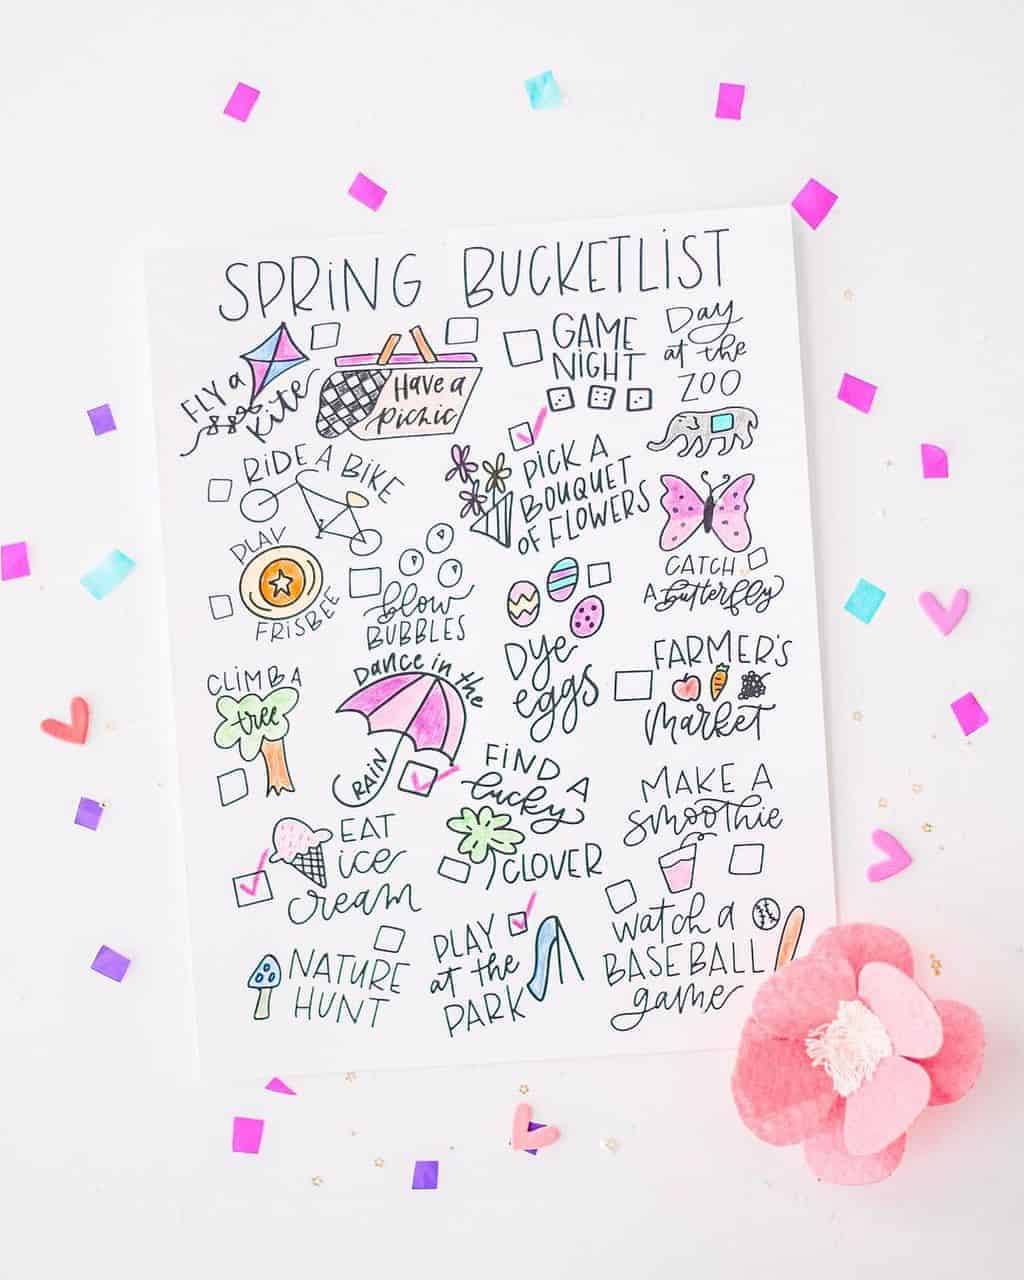 SPRING BUCKETLIST
FLY a
Kite
Have a
picnic
GAME
NIGHT
Day
at the
ZOO
RIDE A BIKE
PICK A
BOUQUET
OF FLOWERS
PLAY
FRISBEE
blow
BUBBLES
Dye
eggs
CATCH
A butterfly
CLIMB A
tree
DANCE in the
RAIN
FARMER'S
Market
FIND A
lucky
CLOVER
MAKE A
smoothie
EAT
ice
cream
NATURE
HUNT
PLAY
at the
PARK
watch a
BASEBALL
game